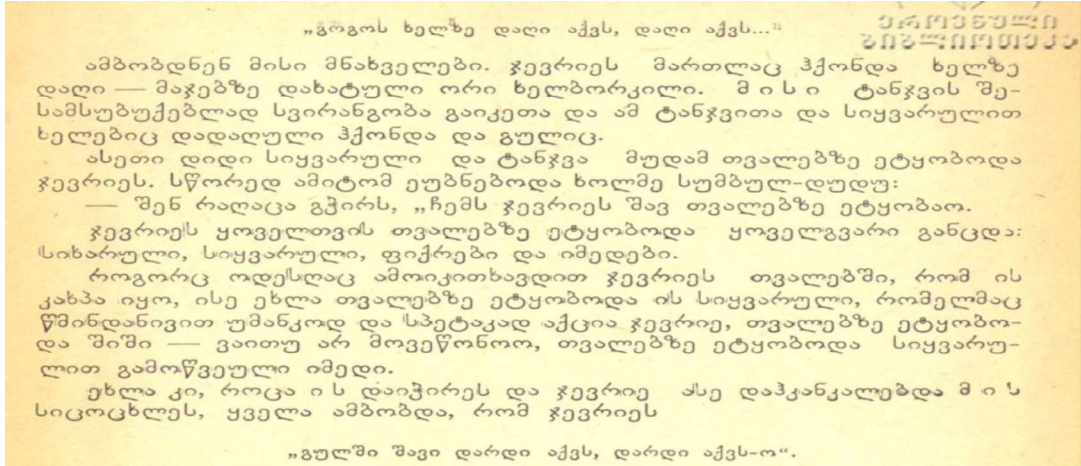 „გოგოს ხელზე დაღი აქვს, დაღი აქვს...“
ამბობდნენ მისი მნახველები. ჯევრიეს მართლაც ჰქონდა ხელზე
დაღი — მაჯებზე დახატული ორი ხელბორკილი. მისი ტანჯვის შე-
სამსუბუქებლად სვირანგობა გაიკეთა და ამ ტანჯვითა და სიყვარულით
ხელებიც დადაღული ჰქონდა და გულიც.
ასეთი დიდი სიყვარული და ტანჯვა მუდამ თვალებზე ეტყობოდა
ჯევრიეს. სწორედ ამიტომ ეუბნებოდა ხოლმე სუმბულ-დუდუ:
— შენ რაღაცა გჭირს, „ჩემს ჯევრიეს შავ თვალებზე ეტყობაო.
ჯევრიეს ყოველთვის თვალებზე ეტყობოდა ყოველგვარი განცდა:
სიხარული, სიყვარული, ფიქრები და იმედები.
როგორც ოდესღაც ამოიკითხავდით ჯევრიეს თვალებში, რომ ის
კახპა იყო, ისე ეხლა თვალებზე ეტყობოდა ის სიყვარული, რომელმაც
წმინდანივით უმანკოდ და სპეტაკად აქცია ჯევრიე, თვალებზე ეტყობო-
და შიში — ვაითუ არ მოვეწონოო, თვალებზე ეტყობოდა სიყვარუ-
ლით გამოწვეული იმედი.
ეხლა კი, როცა ის დაიჭირეს და ჯევრიე ასე დაჰკანკალებდა მის
სიცოცხლეს, ყველა ამბობდა, რომ ჯევრიეს
„გულში შავი დარდი აქვს, დარდი აქვს-ო“.